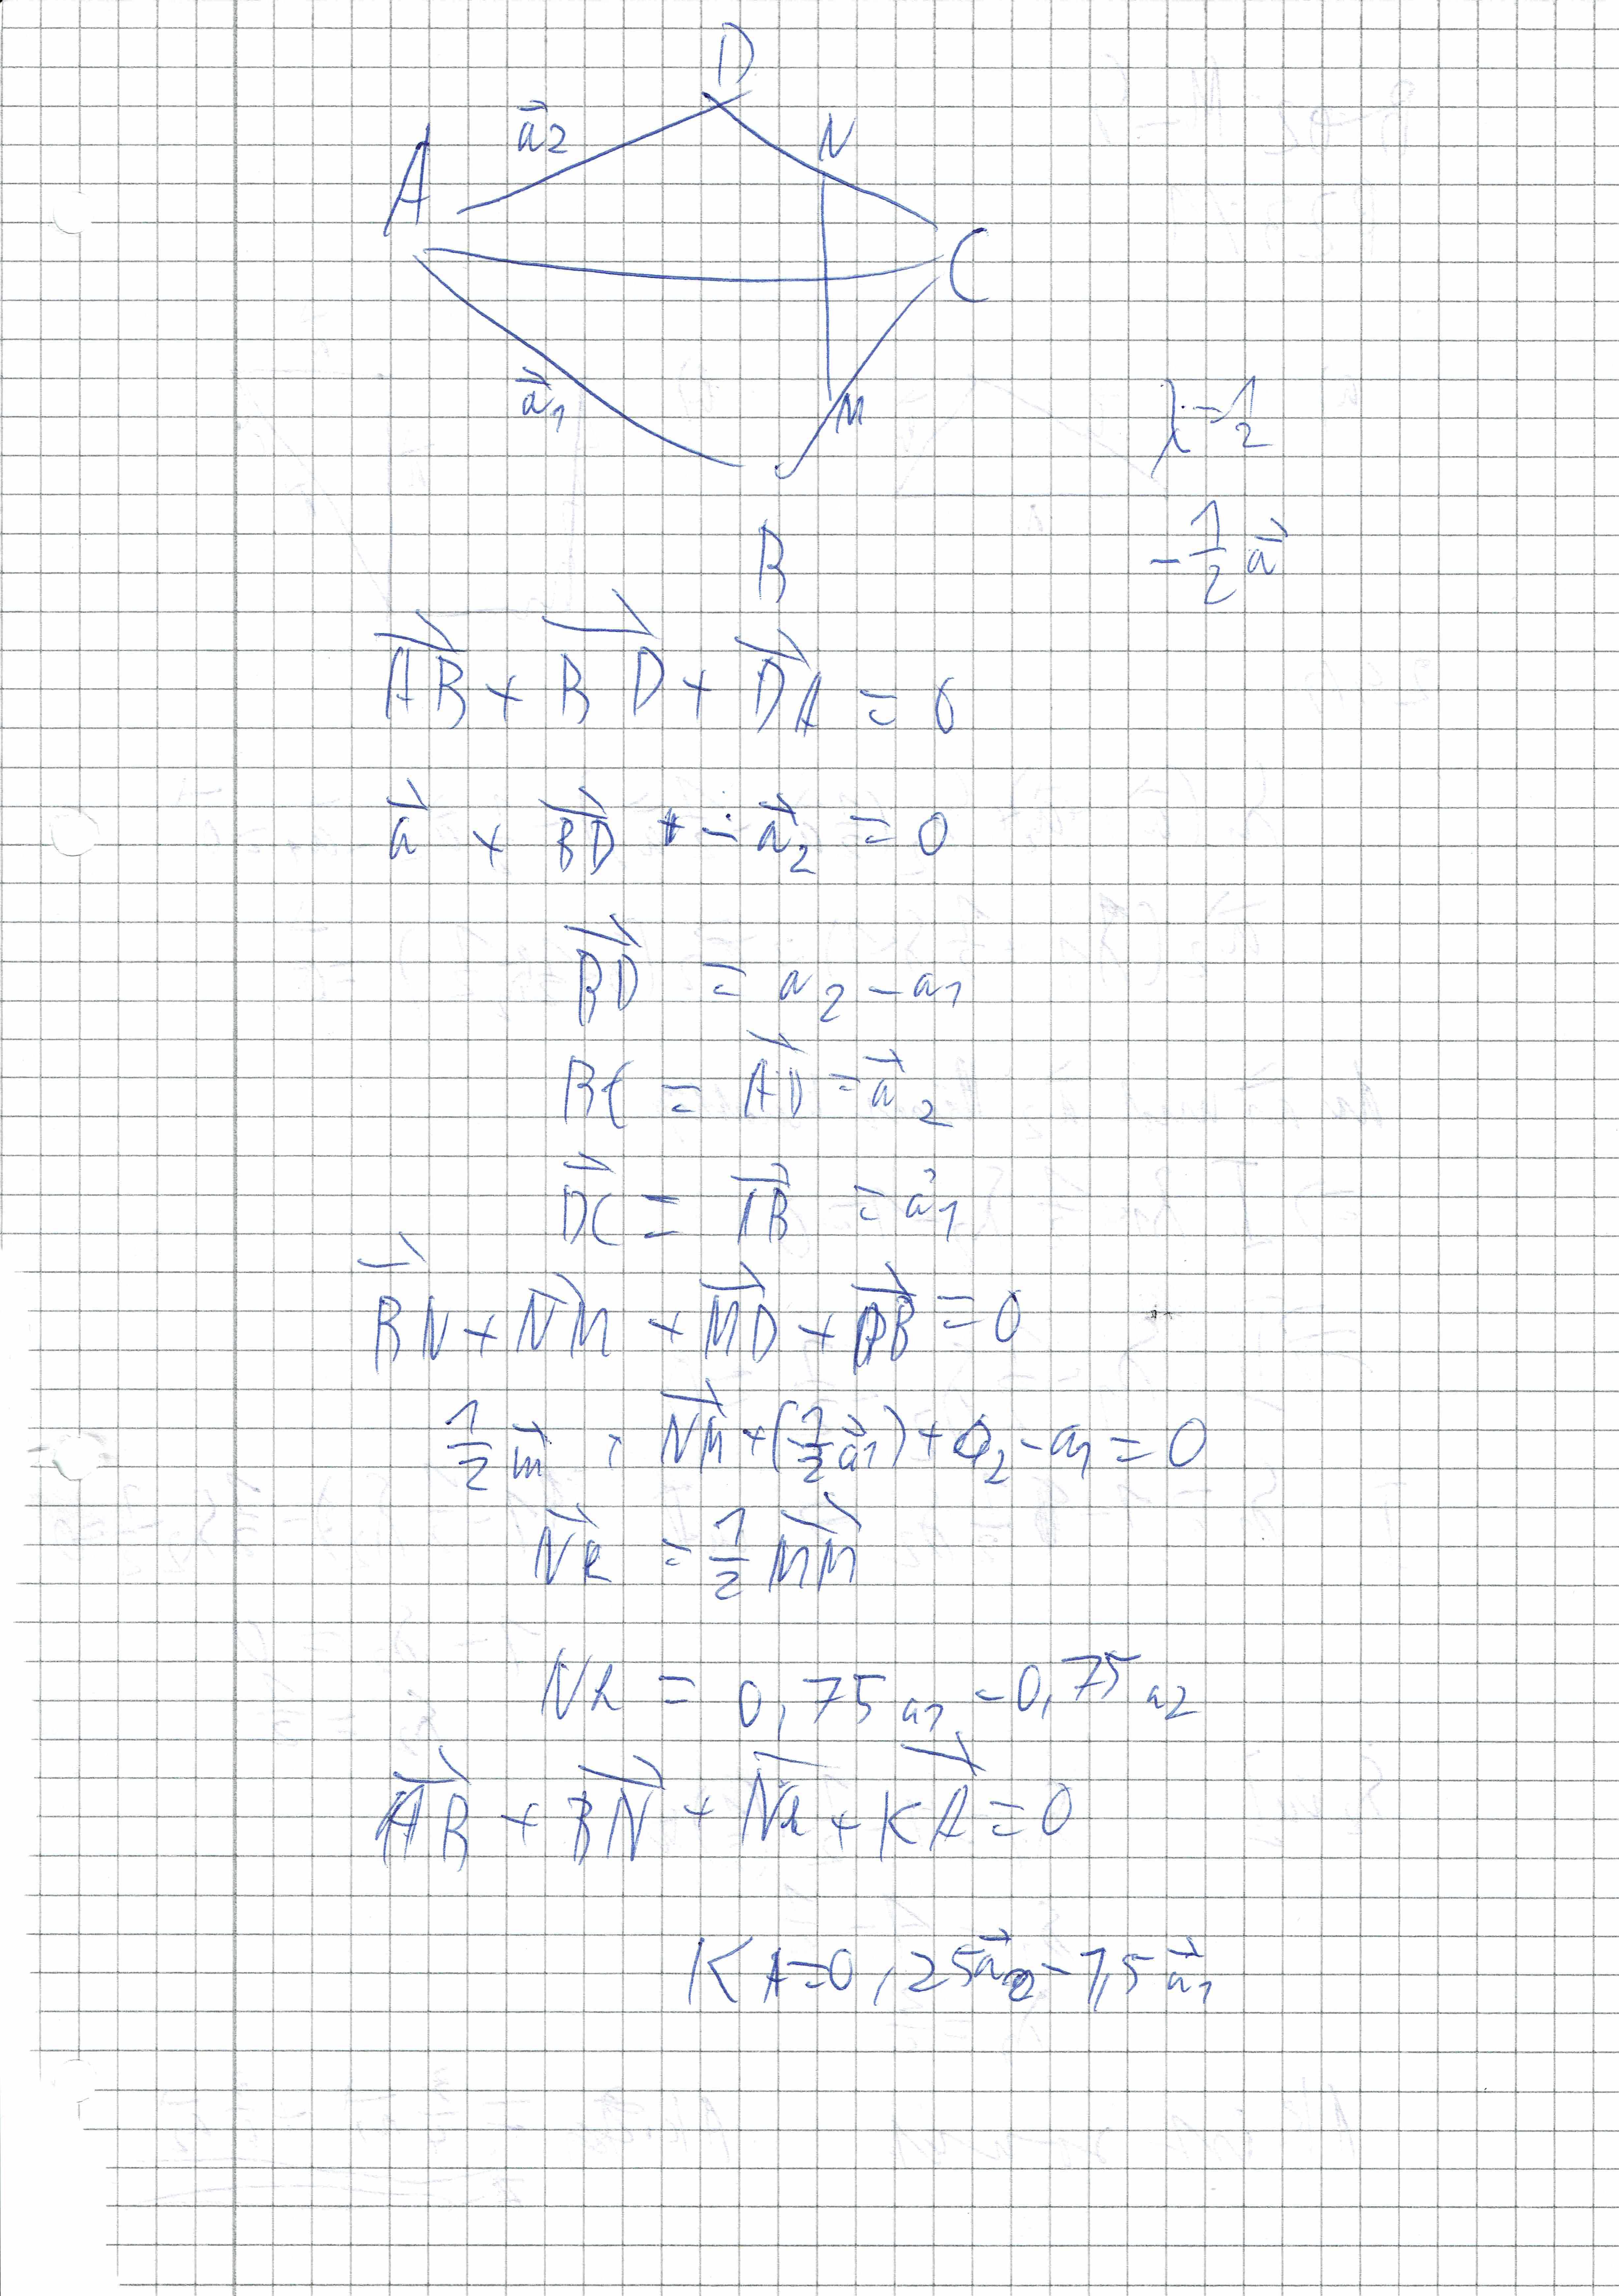 D
a⃗2
N
A
C
a⃗1
M
λ = 1/2
B
- 1/2 a⃗
AB + BD + DA = 0
a⃗ + BD + - a⃗2 = 0
BD = a2 - a1
BC = AD = a⃗2
DC = AB = a⃗1
BN + NM + MD + DB = 0
1/2 m⃗ + NM + (-1/2 a⃗1) + a2 - a1 = 0
NK = 1/2 NM
NK = 0,75 a1 - 0,75 a2
AB + BN + NK + KA = 0
KA = 0,25 a⃗2 - 1,5 a⃗1